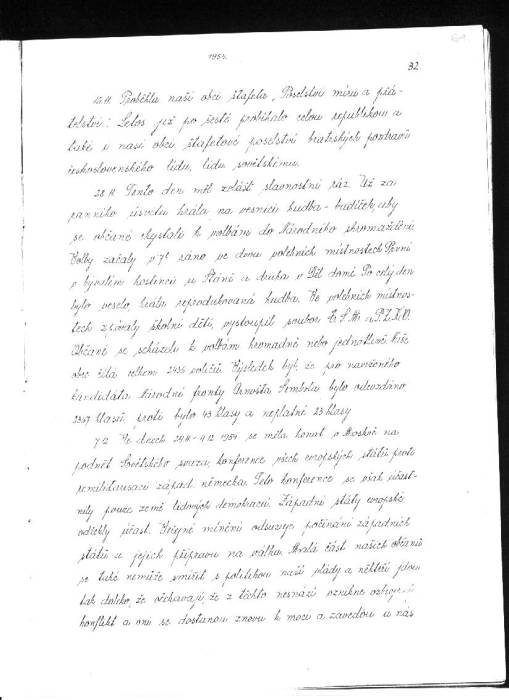 1954.
32.
15.11. Proběhla naší obcí štafeta „Poselství míru a přá-
telství". Letos již po šesté probíhalo celou republikou a
také i naší obcí štafetové poselství bratrských pozdravů
československého lidu, lidu sovětskému.
28.11. Tento den měl zvlášť slavnostní ráz. Už za
ranního úsvitu hrála na vesnici hudba-budíček, aby
se občané chystali k volbám do Národního shromáždění.
Volby začaly v 7h ráno ve dvou volebních místnostech. První
v bývalém hostinci u a druhá v Děl. domě. Po celý den
bylo veselo, hrála reprodukovaná hudba. Ve volebních místnos-
tech zpívaly školní děti, vystoupil soubor
Občané se scházeli k volbám hromadně nebo jednotlivě. Naše
obec čítá celkem 2436 voličů. Výsledek byl, že pro navrženého
kandidáta Národní fronty Arnošta bylo odevzdáno
hlasů, proti bylo 43 hlasy a neplatné 23 hlasy.
7.12. Ve dnech 29.11.-4.12. 1954 se měla konat v Moskvě na
podnět Sovětského svazu, konference všech evropských států proti
remilitarisaci západ. německa. Této konference se však účast-
nily pouze země lidových demokracií. Západní státy evropské
odřekly účast. Veřejné mínění odsuzuje počínání západních
států a jejich přípravu na válku. Malá část našich občanů
se také nemůže smířit s politikou naší vlády a někteří jdou
tak daleko, že očekávají, že z těchto nesnází vznikne ozbrojený
konflikt a oni se dostanou znovu k moci a zavedou u nás